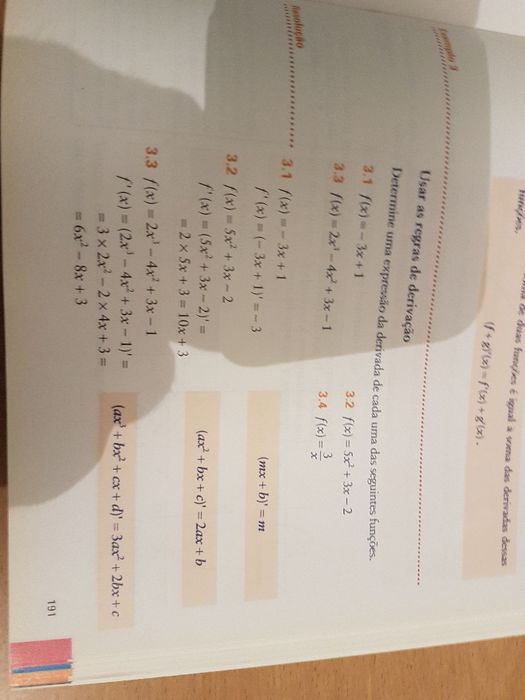 de duas funções é igual à soma das derivadas dessas
funções.
(f + g)'(x) = f'(x) + g'(x).
Exemplo 3
Usar as regras de derivação
Determine uma expressão da derivada de cada uma das seguintes funções.
3.1 f(x) = − 3x + 1
3.2 f(x) = 5x² + 3x − 2
3.3 f(x) = 2x³ − 4x² + 3x − 1
3.4 f(x) = 3/x
Resolução
3.1 f(x) = − 3x + 1
f'(x) = (− 3x + 1)' = − 3
(mx + b)' = m
3.2 f(x) = 5x² + 3x − 2
f'(x) = (5x² + 3x − 2)' =
= 2 × 5x + 3 = 10x + 3
(ax² + bx + c)' = 2ax + b
3.3 f(x) = 2x³ − 4x² + 3x − 1
f'(x) = (2x³ − 4x² + 3x − 1)' =
= 3 × 2x² − 2 × 4x + 3 =
= 6x² − 8x + 3
(ax³ + bx² + cx + d)' = 3ax² + 2bx + c
191